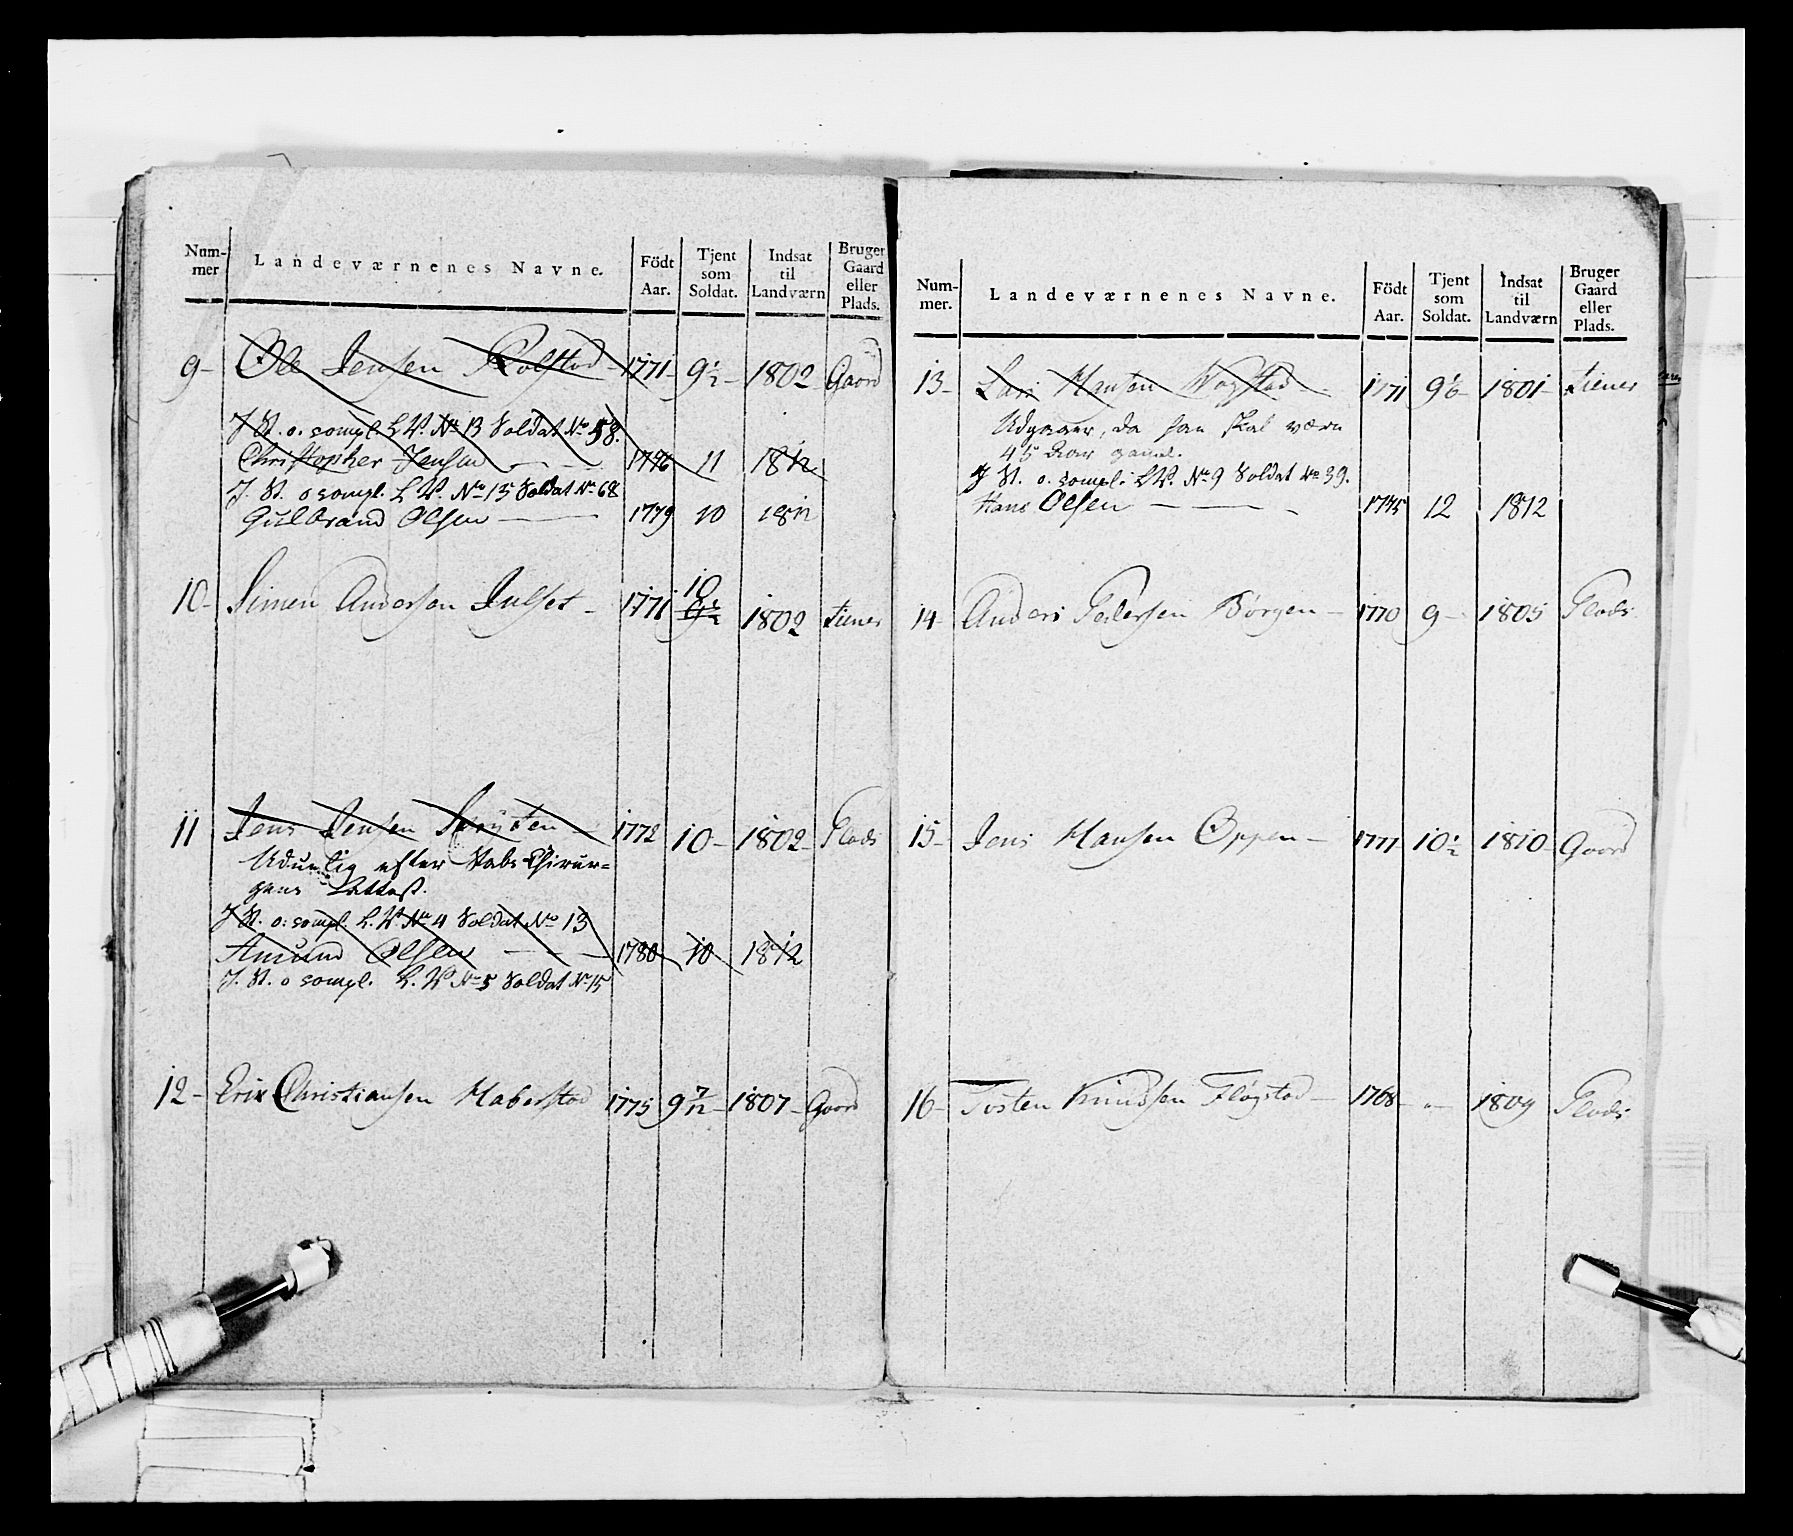 Num-
mer
Landeværnenes Navne.
Födt
Aar.
Tjent
som
Soldat.
Indsat
til
Landværn
Bruger
Gaard
eller
Plads.
9- Ole Jensen Rolstad - 1771- 9½- 1802 Gaard
J St. o. compl. L.V. No 13 Soldat No 58.
Christopher Jensen - - 1776 11 1812
J. St. o compl. L.V. No 15 Soldat No 68
Gulbrand Olsen - 1779 10 1812
10- Simen Andersen Julset - 1771 10 9½ 1802 tiener
11 Jens Jensen - 1772 10- 1802- Plads
Uduelig efter Stabs-Chirur-
gens Attest.
J St. o: compl. L.V. No 4 Soldat No 13
Amund Olsen - - - 1780 10 1812
J. St. o compl. L.V. No 5 Soldat No 15
12- Erik Christiansen Haberstad 1775 9 7/12- 1807- Gaard
Num-
mer.
Landeværnenes Navne.
Födt
Aar.
Tjent
som
Soldat.
Indsat
til
Landværn
Bruger
Gaard
eller
Plads.
13- Lars Hansen - 1771 9 1/6- 1801- tiener
Udgaaer, da han skal være
45 Aar gammel.
J St. o. compl. L.V. No 9 Soldat No 39.
Hans Olsen - - - 1775 12 1812
14- Anders Pedersen Börgen - 1770 9- 1805 Plads
15- Jens Hansen Oppen - 1771 10½ 1810- Gaard
16- Tosten Knudsen Flogstad - 1768- "- 1809 Plads